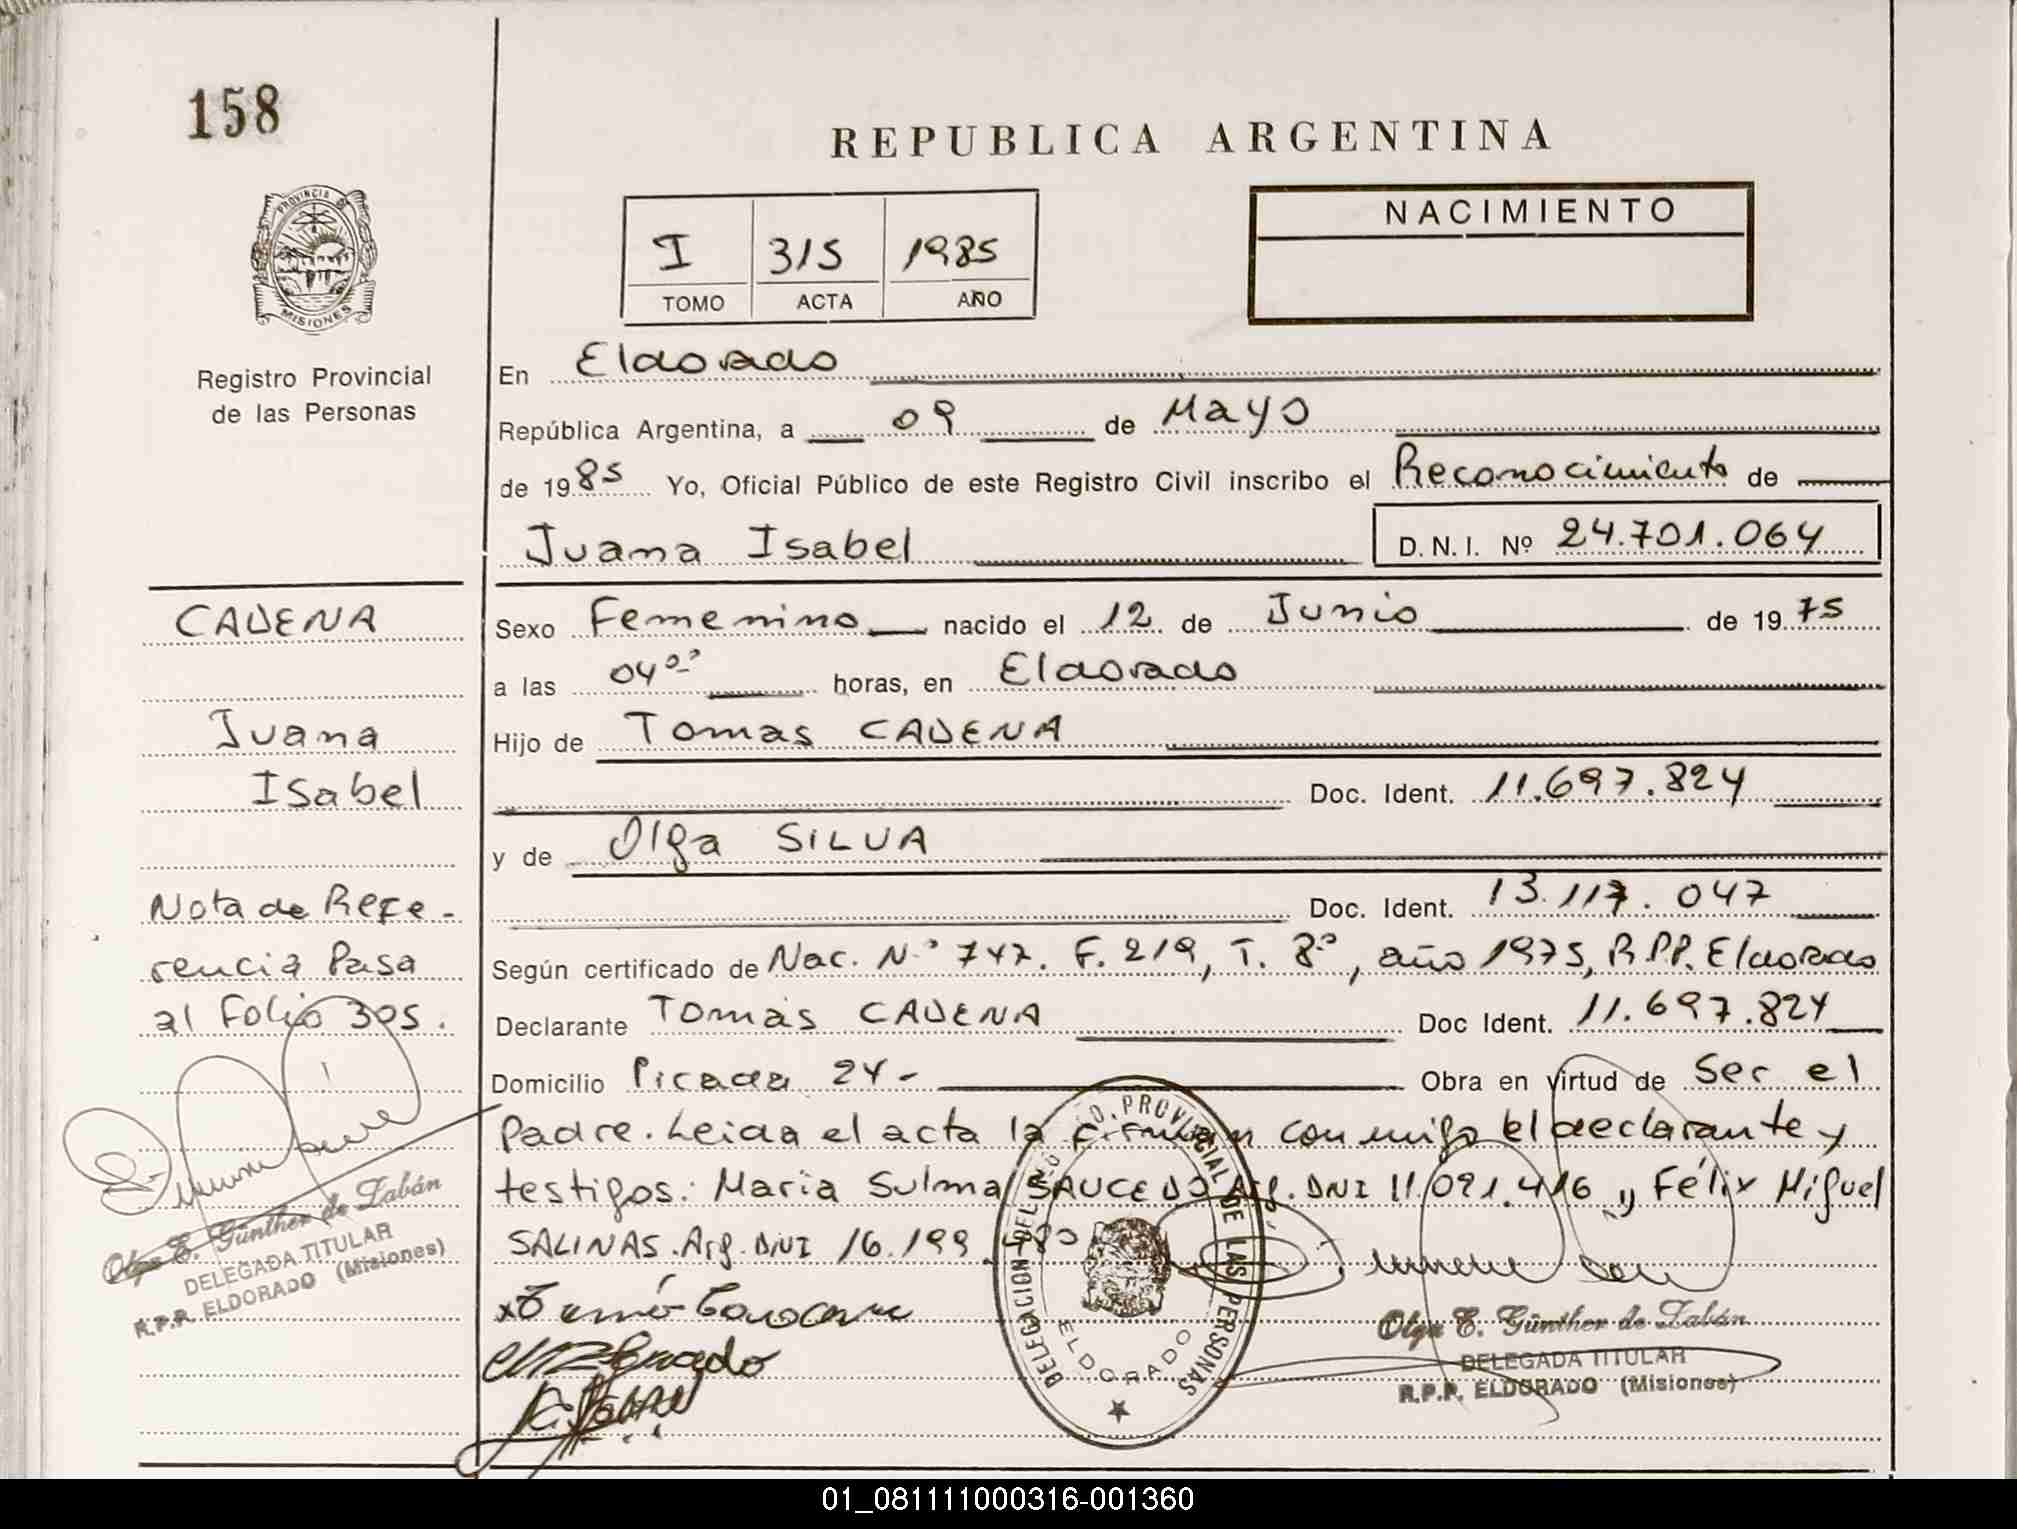 158
REPUBLICA ARGENTINA
PROVINCIA D
MISIONES
Registro Provincial
de las Personas
I 315 1985
TOMO ACTA AÑO
NACIMIENTO
En Eldorado
República Argentina, a 09 de Mayo
de 1985 Yo, Oficial Público de este Registro Civil inscribo el Reconocimiento de
Juana Isabel D.N.I. Nº 24.701.064
CADENA
Juana
Isabel
Nota de Refe-
rencia Pasa
al Folio 305.
Sexo Femenino nacido el 12 de Junio de 1975
a las 04°° horas, en Eldorado
Hijo de Tomas CADENA
Doc. Ident. 11.697.824
y de Olga SILVA
Doc. Ident. 13.117.047
Según certificado de Nac. N.° 747. F. 219, T. 8°, año 1975, R.P.P. Eldorado
Declarante Tomás CADENA Doc Ident. 11.697.824
Domicilio Picada 24- Obra en virtud de Ser el
Padre. Leida el acta la firman conmigo el declarante y
testigos: Maria Sulma SAUCEDO Arg. DNI 11.091.416 y Félix Miguel
SALINAS. Arg. DNI 16.199.480
DELEGACION DEL REGTRO. PROVINCIAL DE LAS PERSONAS
ELDORADO
Olga E. Günther de Zabán
DELEGADA TITULAR
R.P.P. ELDORADO (Misiones)
Olga E. Günther de Zabán
DELEGADA TITULAR
R.P.P. ELDORADO (Misiones)
01_081111000316-001360